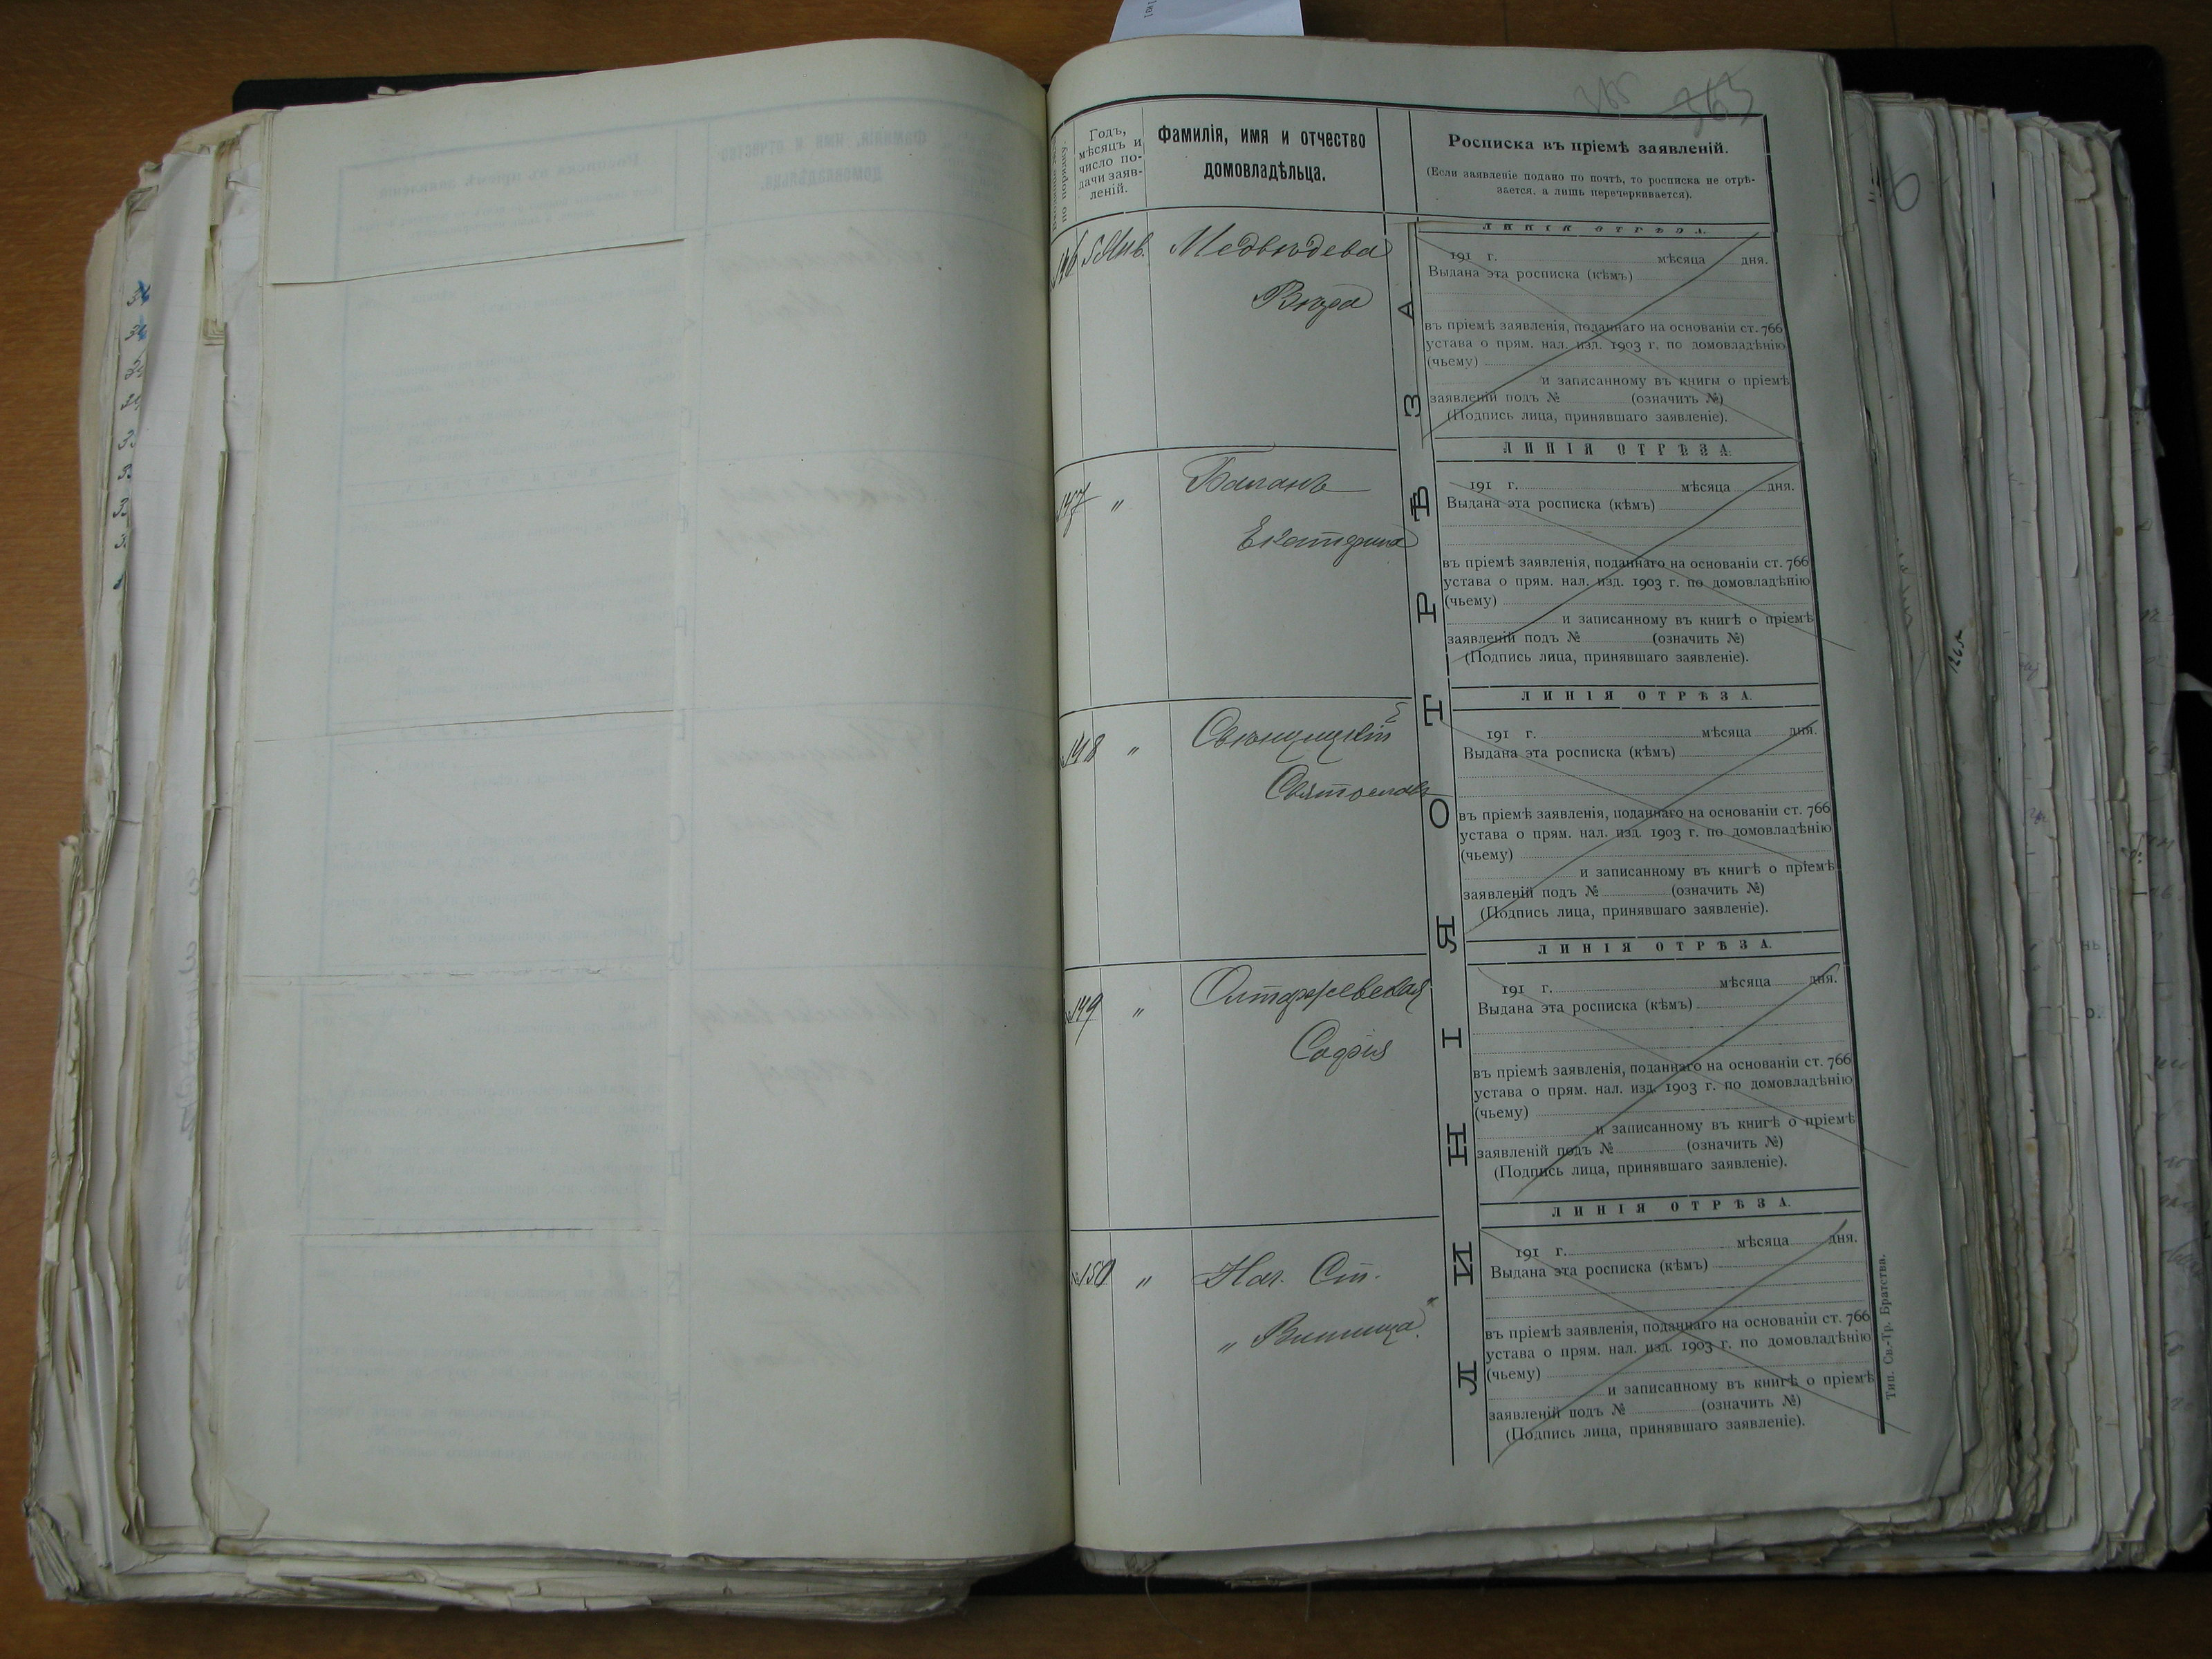 365
Годъ,
мѣсяцъ и
число по-
дачи заяв-
леній.
Фамилія, имя и отчество
домовладѣльца.
Росписка въ пріемѣ заявленій.
(Если заявленіе подано по почтѣ, то росписка не отрѣ-
зается, а лишь перечеркивается).
ЛИНІЯ ОТРѢЗА.
146 5 Янв. Медвѣдева
Вѣра
191 г. мѣсяца дня.
Выдана эта росписка (кѣмъ)
въ пріемѣ заявленія, поданнаго на основаніи ст. 766
устава о прям. нал. изд. 1903 г. по домовладѣнію
(чьему)
и записанному въ книгы о пріемѣ
заявленій подъ № (означить №)
(Подпись лица, принявшаго заявленіе).
ЛИНІЯ ОТРѢЗА.
147 " Баланъ
Екатерина
191 г. мѣсяца дня.
Выдана эта росписка (кѣмъ)
въ пріемѣ заявленія, поданнаго на основаніи ст. 766
устава о прям. нал. изд. 1903 г. по домовладѣнію
(чьему)
и записанному въ книгѣ о пріемѣ
заявленій подъ № (означить №)
(Подпись лица, принявшаго заявленіе).
ЛИНІЯ ОТРѢЗА.
148 " Свѣнцицкій
Святославъ
191 г. мѣсяца дня.
Выдана эта росписка (кѣмъ)
въ пріемѣ заявленія, поданнаго на основаніи ст. 766
устава о прям. нал. изд. 1903 г. по домовладѣнію
(чьему)
и записанному въ книгѣ о пріемѣ
заявленій подъ № (означить №)
(Подпись лица, принявшаго заявленіе).
ЛИНІЯ ОТРѢЗА.
149 " Олтаржевская
Софія
191 г. мѣсяца дня.
Выдана эта росписка (кѣмъ)
въ пріемѣ заявленія, поданнаго на основаніи ст. 766
устава о прям. нал. изд. 1903 г. по домовладѣнію
(чьему)
и записанному въ книгѣ о пріемѣ
заявленій подъ № (означить №)
(Подпись лица, принявшаго заявленіе).
ЛИНІЯ ОТРѢЗА.
150 " Нач. Ст.
"Винница"
191 г. мѣсяца дня.
Выдана эта росписка (кѣмъ)
въ пріемѣ заявленія, поданнаго на основаніи ст. 766
устава о прям. нал. изд. 1903 г. по домовладѣнію
(чьему)
и записанному въ книгѣ о пріемѣ
заявленій подъ № (означить №)
(Подпись лица, принявшаго заявленіе).
ЛИНІЯ ОТРѢЗА
Тип. Св.-Тр. Братства.